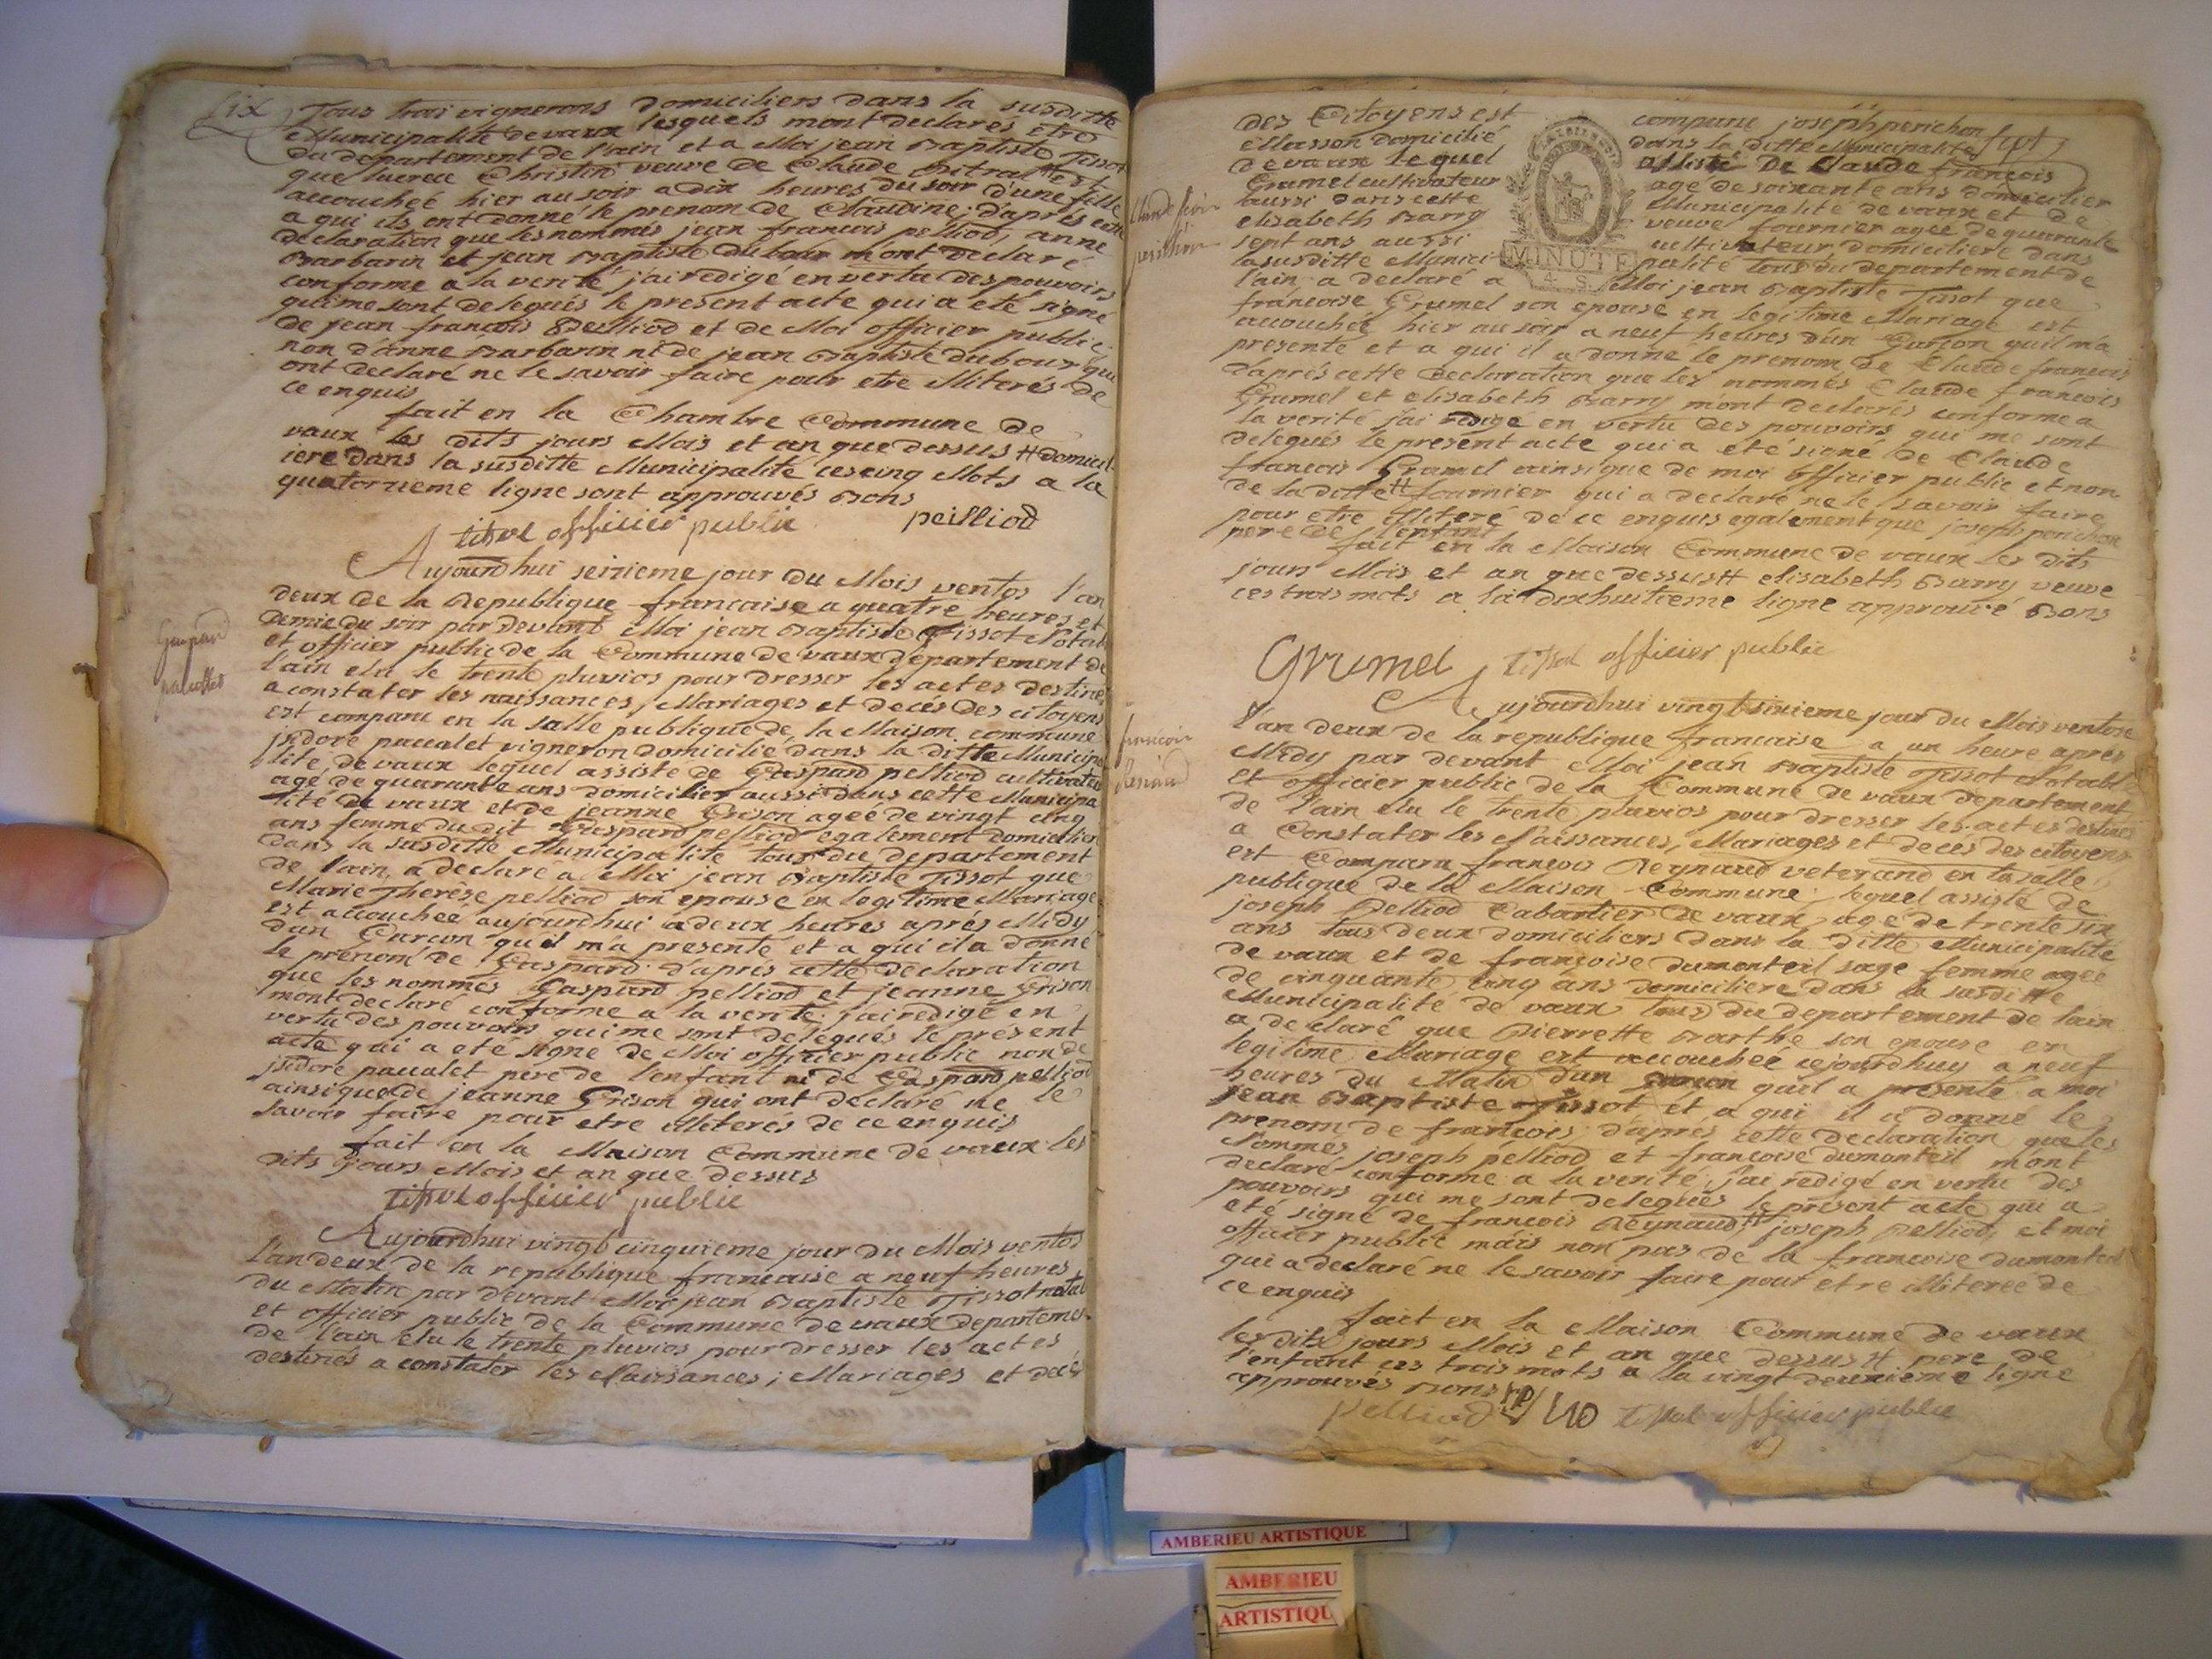 six
Tous trois vignerons domiciliers dans la susditte
Municipalité devaux lesquels mont declarés etre
du departement de l'ain et a Moi jean Baptiste Tissot
que Christin veuve de Claude est
accoucheé hier au soir a dix heures du soir d'une fille
a qui ils ont donné le prenom de Claudine; d'aprés cette
declaration que les nommés jean francois pelliod, anne
Barbarin et jean Baptiste dubour m'ont declaré
conforme a la verité j'ai redigé en vertu des pouvoirs
qui me sont delegués le present acte qui a eté signé
de jean francois Peilliod et de Moi officier public;
non d'anne Barbarin ni de jean Baptiste dubour qui
ont declaré ne le savoir faire pour etre illiterés de
ce enquis
fait en la Chambre Commune de
vaux les dits jours Mois et an que dessus # domicil
iere dans la susditte Municipalité ces cinq Mots a la
quatorzieme ligne sont approuvés Bons
peilliod
tissot officier public
Gaspard
pacallet
Aujourdhui seizieme jour du Mois ventos l'an
deux de la Republique francaise a quatre heures et
demie du soir par devant Moi jean Baptiste Tissot Notab
et officier public de la Commune de vaux departement de
l'ain elu le trente pluvios pour dresser les actes destinés
a constater les naissances, Mariages et decés des citoyens
est comparu en la salle publique de la Maison commune
jsidore pacalet vigneron domicilié dans la ditte Municipa
lité de vaux lequel assisté de Gaspard pelliod cultivateur
agé de quarante ans domicilier aussi dans cette Municipa
lité de vaux et de jeanne Grison ageé de vingt cinq
ans femme du dit Gaspard pelliod egalement domicilier
dans la susditte Municipalité tous du departement
de l'ain, a declaré a Moi jean Baptiste Tissot que
Marie Therèse pelliod son epouse en legitime Mariage
est accouchee aujourdhui a deux heures aprés Midy
d'un Garcon qu'il m'a presenté et a qui il a donné
le prenom de Gaspard d'aprés cette declaration
que les nommés Gaspard pelliod et jeanne Grison
mont declaré conforme a la verité j'ai redigé en
vertu des pouvoirs qui me sont delegués le present
acte qui a eté signé de Moi officier public non de
jsidore pacalet pere de l'enfant ni de Gaspard pelliod
ainsi que de jeanne Grison qui ont declaré ne le
savoir faire pour etre illiterés de ce enquis
fait en la Maison Commune de vaux les
dits jours Mois et an que dessus
tissot officier public
Aujourdhui vingt cinquieme jour du Mois ventos
l'an deux de la republique francaise a neuf heures
du Matin par devant Moi jean Baptiste Tissot notab
et officier public de la Commune de vaux departemen
de l'ain elu le trente pluvios pour dresser les actes
destinés a constater les Naissances; Mariages et decés
des Citoyens est comparu joseph perichon sept
Masson domicilié dans la ditte Municipalité
de vaux lequel assisté de Claude francois
Grumel cultivateur agé de soixante ans domicilier
aussi dans cette Municipalité de vaux et de
elisabeth Barry veuve fournier ageé de quarante
sept ans aussi cultivateur domiciliere dans
la susditte Munici palité tous du departement de
MINUTE
l'ain, a declaré a Moi jean Baptiste Tissot que
Claude
perichon
francoise Grumel son epouse en legitime Mariage est
accouchée hier au soir a neuf heures d'un Garcon qu'il m'a
presenté et a qui il a donné le prenom de Claude francois
d'aprés cette Declaration que les nommés Claude francois
Grumel et elisabeth Barry m'ont declarés conforme a
la verité j'ai redigé en vertu des pouvoirs qui me sont
delegués le present acte qui a eté signé de Claude
francois Grumel ainsi que de moi officier public et non
de la ditte # fournier qui a declaré ne le savoir faire
pour etre illiteré de ce enquis egalement que joseph perichon
pere de l'enfant
fait en la Maison Commune de vaux les dits
jours Mois et an que dessus # elisabeth Barry veuve
ces trois mots a la dix huitieme ligne approuvé Bons
Grumel tissot officier public
francois
Reinaud
Aujourdhui vingt sixieme jour du Mois ventose
l'an deux de la republique francaise a un heure aprés
Midy par devant Moi jean Baptiste Tissot Notable
et officier public de la Commune de vaux departement
de l'ain elu le trente pluvios pour dresser les actes destinés
a Constater les Naissances, Mariages et decés des citoyens
est Comparu francois Reynaud veterand en la salle
publique de la Maison Commune; lequel assisté de
joseph Pelliod Cabartier de vaux agé de trente six
ans tous deux domiciliers dans la ditte Municipalité
de vaux et de françoise dumonteil sage femme ageé
de cinquante cinq ans domiciliere dans la susditte
Municipalité de vaux tous du departement de l'ain
a declaré que Pierrette Barthe son epouse en
legitime Mariage est accoucheé cejourdhuy a neuf
heures du Matin d'un garcon quil a presenté a moi
jean Baptiste Tissot et a qui il a donné le
prenom de francois; d'apres cette declaration que les
Nommés joseph pelliod et francoise dumonteil mont
declaré conforme a la verité, j'ai redigé en vertu des
pouvoirs qui me sont delegués le present acte qui a
eté signé de francois Reynaud, # joseph pelliod, et moi
officier public mais non pas de la francoise dumonteil
qui a declaré ne le savoir faire pour etre illiteree de
ce enquis
fait en la Maison Commune de vaux
les dits jours Mois et an que dessus # pere de
l'enfant ces trois mots a la vingt deuxieme ligne
approuvés Bons
pelliod tissot officier public
AMBERIEU ARTISTIQUE
AMBERIEU
ARTISTIQU